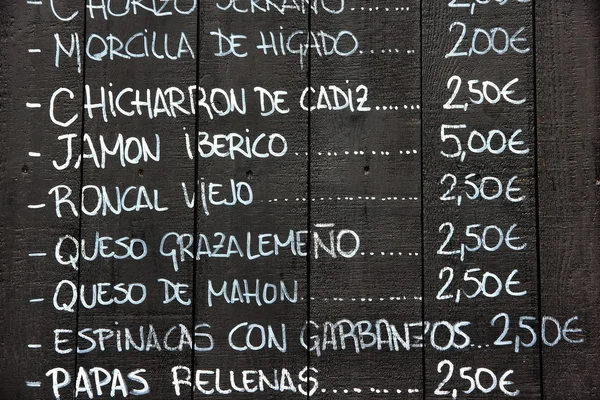 - CHORIZO SERRANO....... 2,00€
- MORCILLA DE HIGADO....... 2,00€
- CHICHARRON DE CADIZ...... 2,50€
- JAMON IBERICO ............... 5,00€
- RONCAL VIEJO .................. 2,50€
- QUESO GRAZALEMEÑO....... 2,50€
- QUESO DE MAHON ............. 2,50€
- ESPINACAS CON GARBANZOS... 2,50€
- PAPAS RELLENAS........... 2,50€